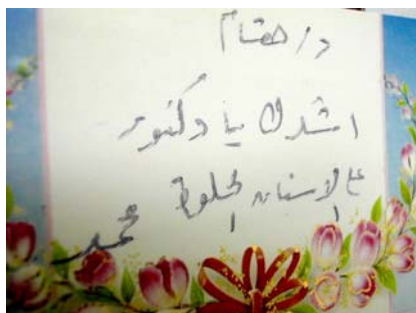 د/ هشام
اشكرك يا دكتور
على الاسنان الحلوة
محمد